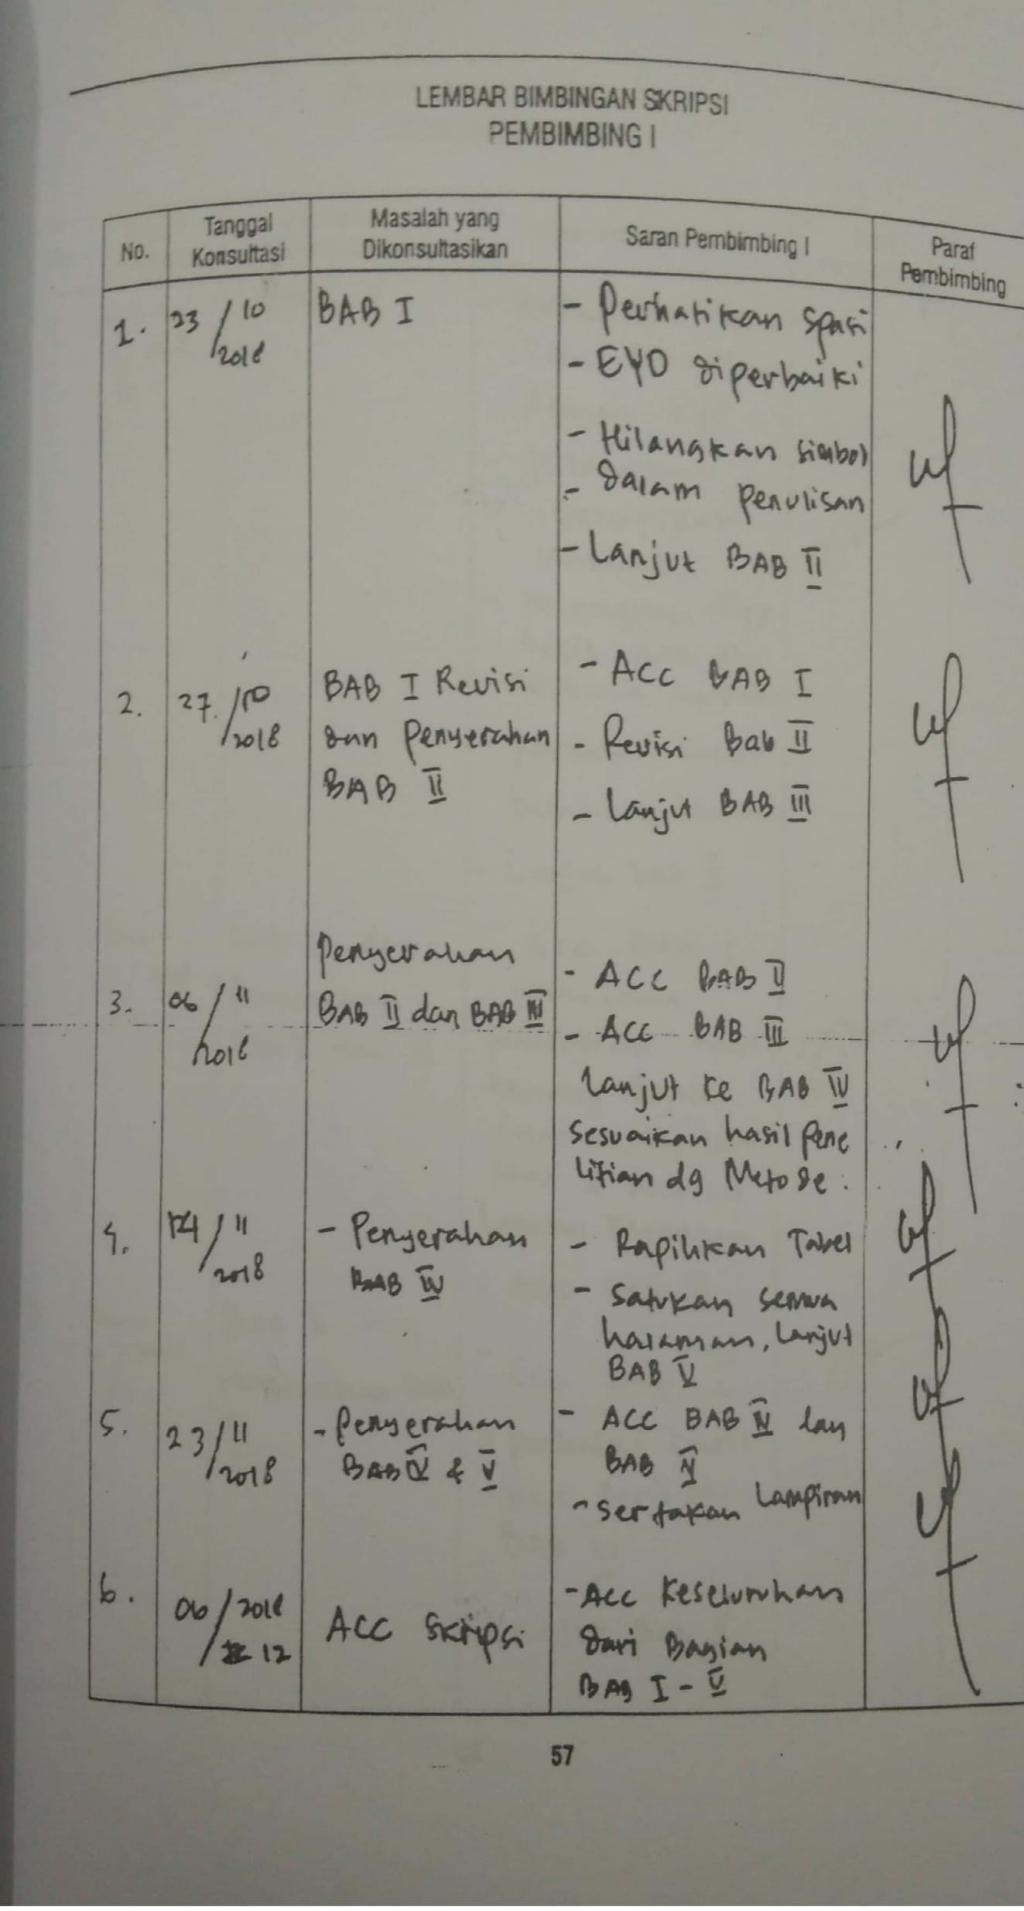 LEMBAR BIMBINGAN SKRIPSI
PEMBIMBING I
No.
Tanggal
Konsultasi
Masalah yang
Dikonsultasikan
Saran Pembimbing I
Paraf
Pembimbing
1.
23/10
2018
BAB I
- Perhatikan Spasi
- EYD diperbaiki
- Hilangkan simbol
- dalam penulisan
- Lanjut BAB II
2.
27/10
2018
BAB I Revisi
dan Penyerahan
BAB II
- ACC BAB I
- Revisi Bab II
- Lanjut BAB III
3.
06/11
2018
Penyerahan
BAB II dan BAB III
- ACC BAB II
- ACC BAB III
Lanjut ke BAB IV
Sesuaikan hasil pene
litian dg Metode.
4.
14/11
2018
- Penyerahan
BAB IV
- Rapihkan Tabel
- Satukan semua
halaman, Lanjut
BAB V
5.
23/11
2018
- Penyerahan
BAB IV & V
- ACC BAB IV dan
BAB V
- Sertakan Lampiran
6.
06/2018
12
ACC Skripsi
- Acc Keseluruhan
dari Bagian
BAB I - V
57